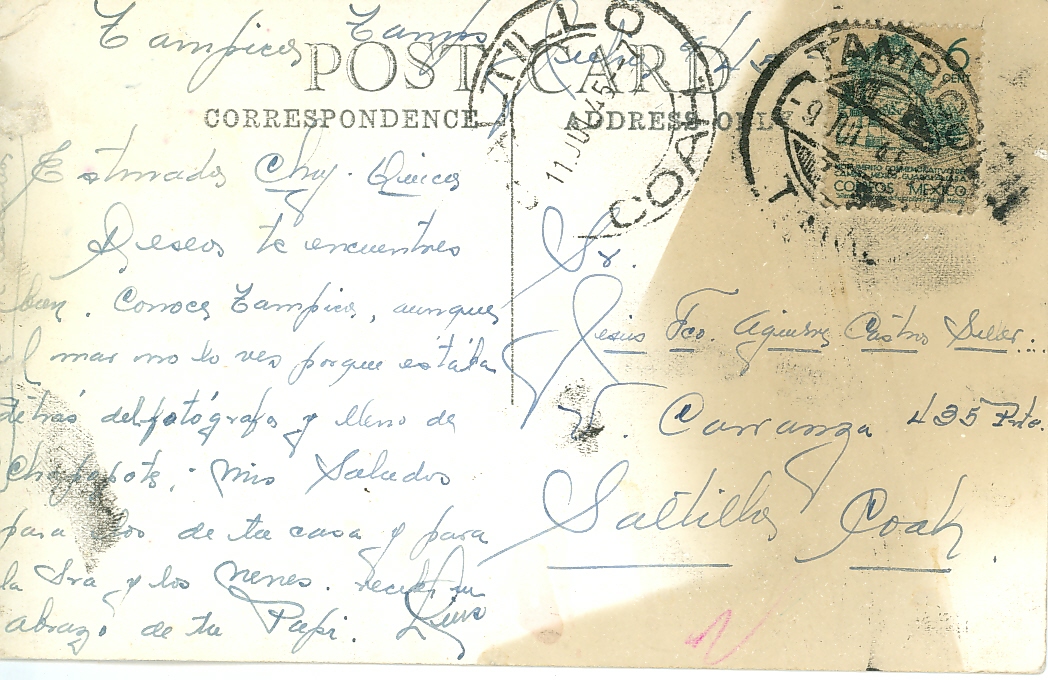 Tampico Tamps Julio 9/45
POST CARD
CORRESPONDENCE
ADDRESS ONLY
SALTILLO
11 JUL 45
COAH
TAMPICO
9 JUL 45
TAM
6
CENT
CORREOS MEXICO
Estimado Chuy.
Deseo te encuentres
bien. Conoce Tampico, aunque
el mar no lo ves porque estaba
detrás del fotógrafo y lleno de
Chapopote; mis Saludos
para los de tu casa y para
la Sra y los nenes. recibe un
abrazo de tu Papi. Luis
Sr.
Jesús Fco. Aguirre Castro
V. Carranza 435 Pte.
Saltillo Coah.